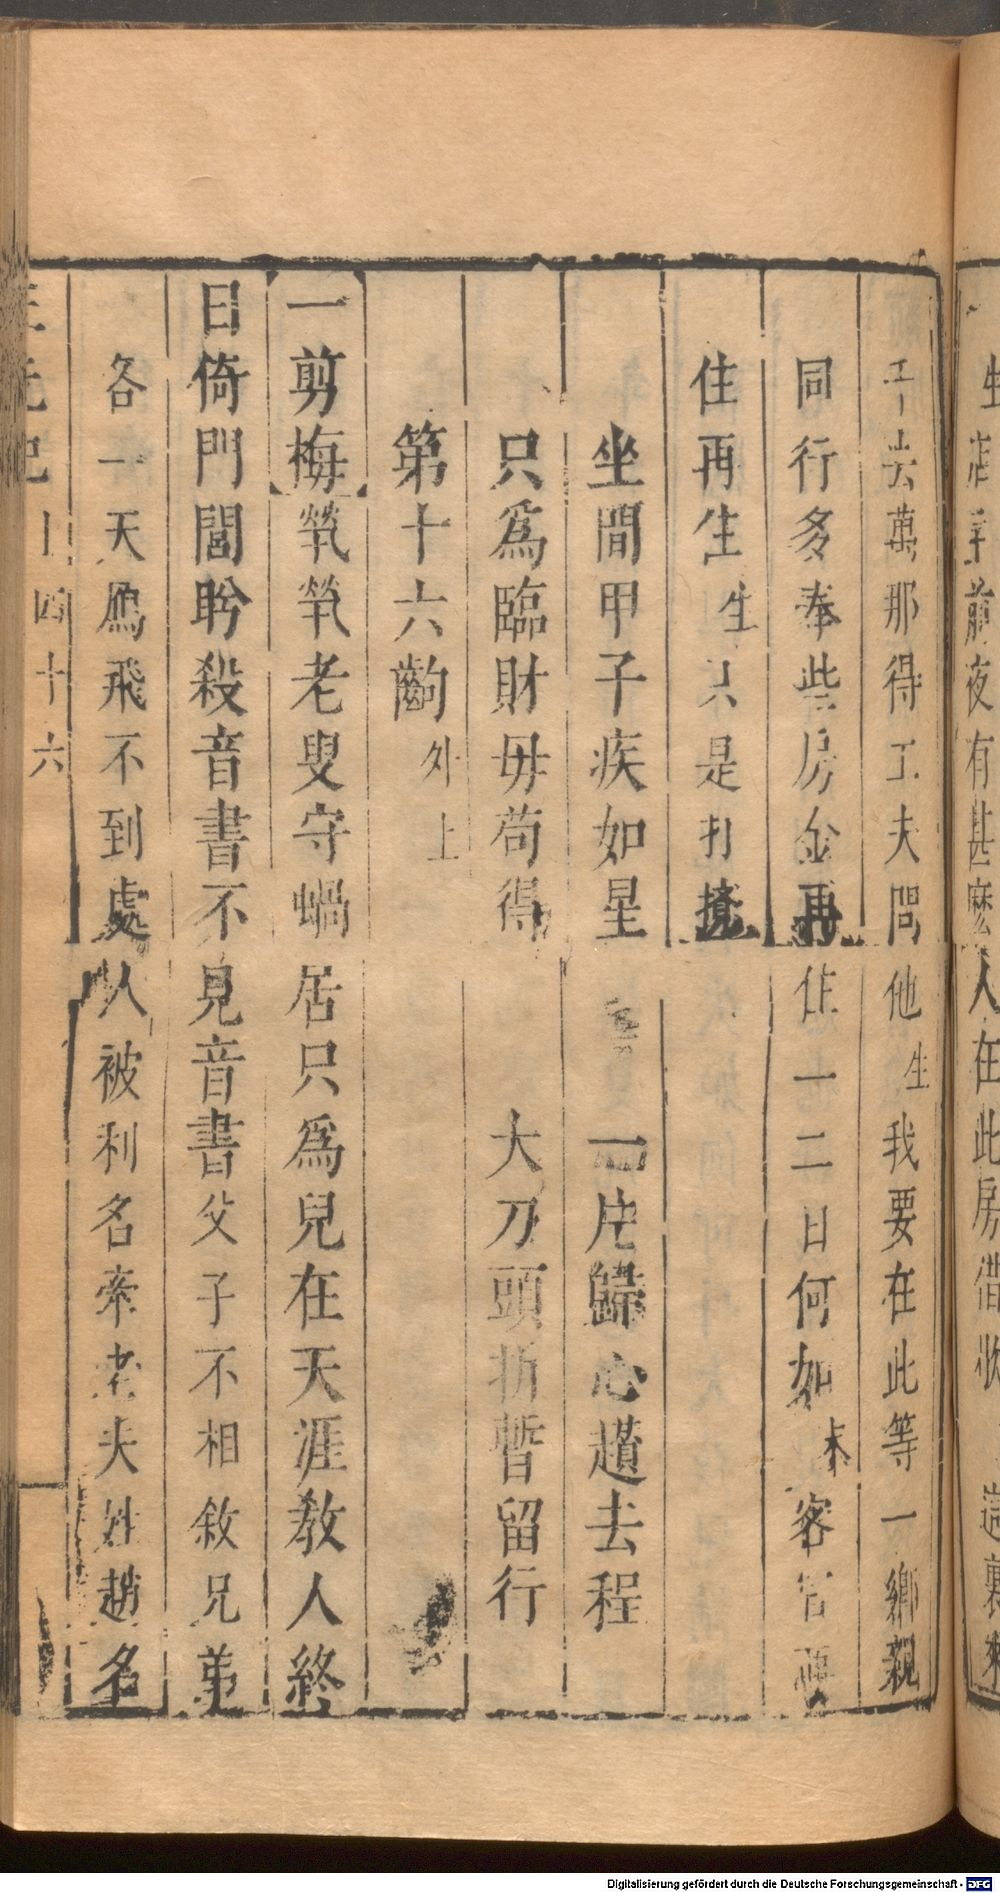 生 店 前夜有甚麼人在此房借收 這裏來
去萬那得工夫問他 生 我要在此等一鄉親
同行多奉些房金再住一二日何如 末 客官
住再生 生 只是打攪
坐間甲子疾如星 一片歸心趲去程
只爲臨財毋苟得 大刀頭折暫留行
第十六齣 外上
一剪梅 煢煢老叟守蝸居只爲兒在天涯教人終
日倚門閭盻殺音書不見音書父子不相敘兄弟
各一天鴈飛不到處人被利名牽老夫姓趙名
上 四十六
Digitalisierung gefördert durch die Deutsche Forschungsgemeinschaft - DFG